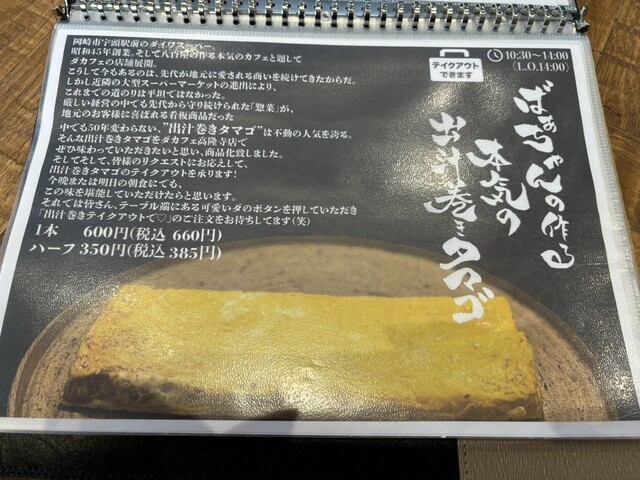 岡崎市宇頭駅前のダイワスーパー
昭和45年創業。そして八百屋の作る本気のカフェと題して
ダカフェの店舗展開。
こうして今もあるのは、先代が地元に愛される商いを続けてきたからだ。
しかし近隣の大型スーパーマーケットの進出により、
これまでの道のりは平坦ではなかった。
厳しい経営の中でも先代から守り続けられた「惣菜」が、
地元のお客様に喜ばれる看板商品だった
中でも50年変わらない、"出汁巻きタマゴ"は不動の人気を誇る。
そんな出汁巻きタマゴをダカフェ高隆寺店で
ぜひ味わっていただきたいと思い、商品化致しました。
そしてそして、皆様のリクエストにお応えして、
出汁巻きタマゴのテイクアウトを承ります!
今晩または明日の朝食にでも、
この味を堪能していただけたらと思います。
それでは皆さん、テーブル端にある可愛いダのボタンを押していただき
「出汁巻きテイクアウトで♡」のご注文をお待ちしてます(笑)
1本 600円(税込 660円)
ハーフ 350円(税込 385円)
テイクアウト
できます
10:30~14:00
(L.O.14:00)
ばぁちゃんの作る
本気の
出汁巻きタマゴ